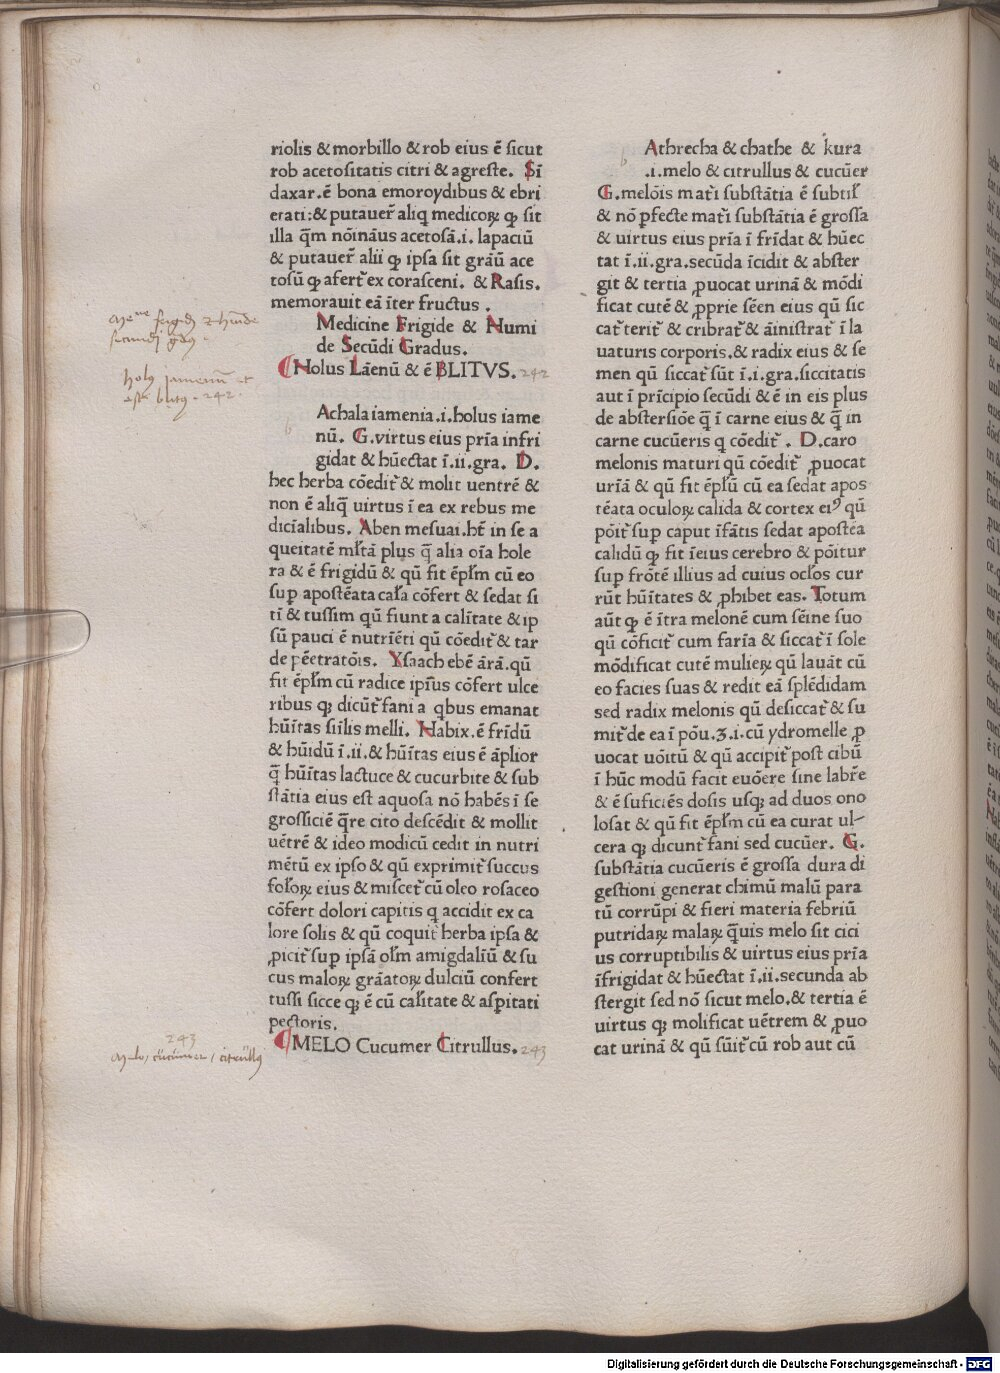 riolis & morbillo & rob eius ē ſicut
rob acetoſitatis citri & agreſte. Sī
daxar.ē bona emoroydibus & ebri
erati:& putauer̄ aliq medicoꝝ ꝙ ſit
illa q̄m nōīnāus acetoſā.i. lapaciū
& putauer̄ alii ꝙ ipſa ſit graū ace
toſū ꝙ afert̄ ex coraſceni. & Raſis.
memorauit eā īter fructus .
Medicine Frigide & Numi
de Secūdi Gradus.
Nolus Lāenū & ē BLITVS. 242
Achala iamenia.i.holus iame
nū. G.virtus eius pria infri
gidat & hūectat ī.ii.gra. D.
hec herba cōedit̄ & molit uentrē &
non ē aliq̄ uirtus ī ea ex rebus me
dicīalibus. Aben meſuai.ht̄ in ſe a
queitatē mltā̄ plus q̄ alia oīa hole
ra & ē frigidū & qū fit ēpl̄m cū eo
ſup̱ apoſtēata cal̄a cōfert & ſedat ſi
ti & tuſſim qū fiunt a calītate & ip
ſū pauci ē nutrīēti qū cōedit̄ & tar
de pēetratōis. Yſaach ebē ārā.qū
fit ēpl̄m cū radice ipīus cōfert ulce
ribus qꝫ dicūt̄ fani a qbus emanat
hūītas ſiīlis melli. Habix.ē frīdū
& hūidū ī.ii.& hūītas eius ē āplior
q̄ hūītas lactuce & cucurbite & ſub
ſtātia eius eſt aquoſa nō habēs ī ſe
groſſiciē q̄re cito deſcēdit & mollit
uētrē & ideo modicū cedit in nutri
mētū ex ipſo & qū exprimit̄ ſuccus
fol̄oꝝ eius & miſcet̄ cū oleo roſaceo
cōfert dolori capitis q accidit ex ca
lore ſolis & qū coquit̄ herba ipſa &
ꝓicit̄ ſup̱ ipſā ol̄m amigdaliū & ſu
cus maloꝝ grāatoꝝ dulciū confert
tuſſi ſicce qꝫ ē cū cal̄itate & aſp̱itati
pectoris.
MELO Cucumer Citrullus. 243
Athrecha & chathe & kura
.i.melo & citrullus & cucūer
G.melōis mat̄i ſubſtātia ē ſubtil̄
& nō ꝑfecte mat̄i ſubſtātia ē groſſa
& uirtus eius pria ī frīdat & hūec
tat ī.ii.gra.ſecūda īcidit & abſter
git & tertia ꝓuocat urinā & mōdi
ficat cutē & ꝓprie ſēen eius qū ſic
cat̄ terit̄ & cribrat̄ & āīniſtrat̄ ī la
uaturis corporis.& radix eius & ſe
men qū ſiccat̄ ſūt ī.i.gra.ſiccitatis
aut ī prīcipio ſecūdi & ē in eis plus
de abſterſiōe q̄ ī carne eius & q̄ in
carne cucūeris q cōedit̄ . D.caro
melonis maturi qū cōedit̄ ꝓuocat
urīā & qū fit ēpl̄ū cū ea ſedat apos
tēata oculoꝝ calida & cortex eiꝰ qū
pōit̄ ſup̱ caput īfātis ſedat apoſtēa
calidū ꝙ fit īeius cerebro & pōitur
ſup̱ frōtē illius ad cuius ocl̄os cur
rūt hūītates & ꝓhibet eas. Totum
aūt ꝙ ē ītra melonē cum ſēine ſuo
qū cōficit̄ cum farīa & ſiccat̄ ī ſole
mōdificat cutē mulieꝝ qū lauāt cū
eo facies ſuas & redit eā ſplēdidam
sed radix melonis qū deſiccat̄ & ſu
mit̄ de ea ī pōu.ʒ.i.cū ydromelle ꝓ
uocat uōitū & qū accipit̄ poſt cibū
ī hūc modū facit euōere ſine labr̄e
& ē ſuficiēs doſis uſqꝫ ad duos ono
loſat & qū fit ēpl̄m cū ea curat ul-
cera qꝫ dicunt̄ fani sed cucūer. G.
ſubſtātia cucūeris ē groſſa dura di
geſtioni generat chimū malū para
tū corrūpi & fieri materia febriū
putridaꝝ malaꝝ q̄uis melo ſit cici
us corruptibilis & uirtus eius pria
īfrigidat & hūectat ī.ii.secunda ab
ſtergit ſed nō ſicut melo.& tertia ē
uirtus qꝫ molificat uētrem & ꝓuo
cat urinā & qū ſūit̄ cū rob aut cū
holus iamenū et
est blitus . 242 .
243
Melo / cucumer / citrullꝰ
Digitalisierung gefördert durch die Deutsche Forschungsgemeinschaft - DFG